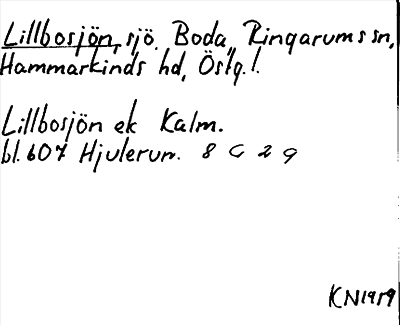 Lillbosjön, sjö. Boda, Ringarums sn,
Hammarkinds hd, Östg.l.
Lillbosjön ek Kalm.
bl. 607 Hjulerum. 8 G 2 g
KN 1959